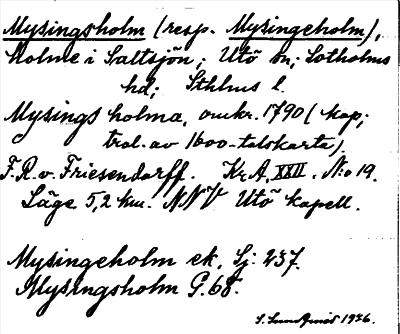 Mysingsholm (resp. Mysingeholm),
Holme i Saltsjön; Utö sn; Sotholms
hd; Sthlms l.
Mysings holma, omkr. 1790 (kop;
trol. av 1600-talskarta).
F. R. v. Friesendorff. Kr. A. XXII. N:o 19.
Läge 5,2 km. NNV Utö kapell.
Mysingeholm ek. Sj. 237.
Mysingsholm G. 68.
S. Lundquist 1936.